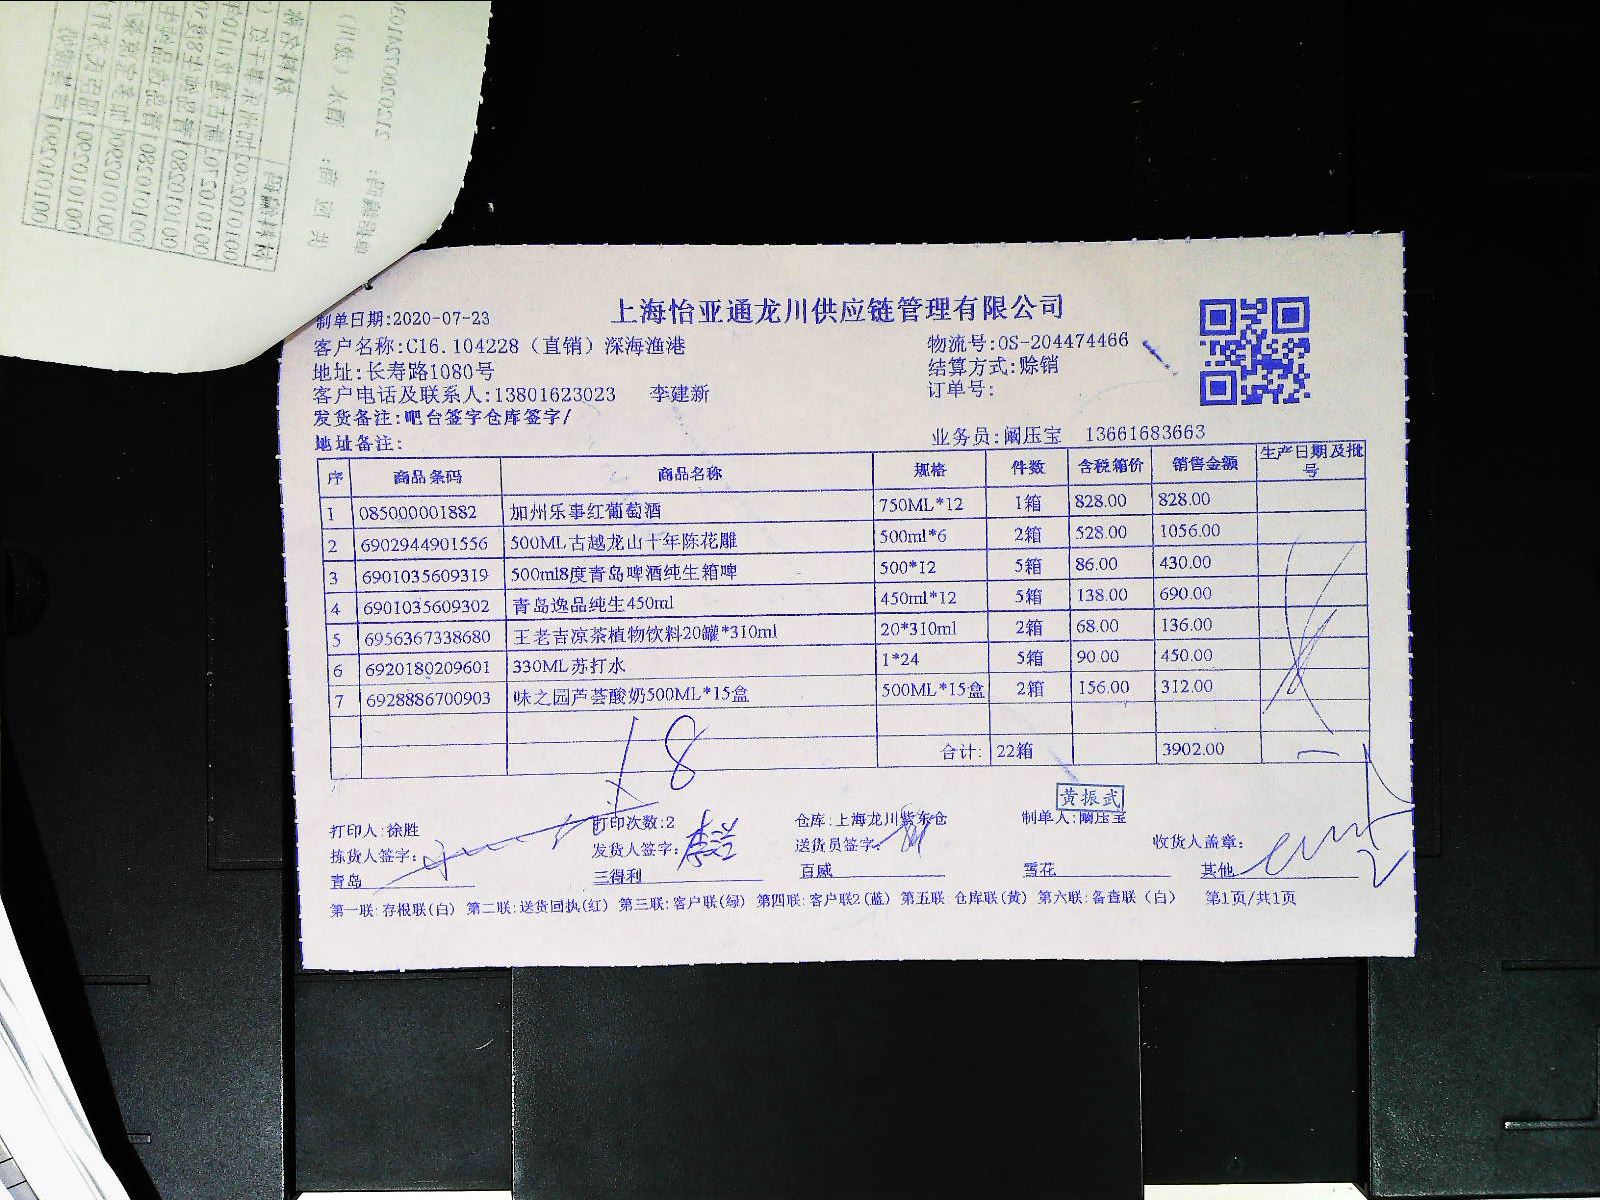 上海怡亚通龙川供应链管理有限公司
制单日期:2020-07-23
客户名称:C16.104228（直销）深海渔港 物流号:OS-204474466
地址:长寿路1080号 结算方式:赊销
客户电话及联系人:13801623023 李建新 订单号:
发货备注:吧台签字仓库签字/
地址备注: 业务员:阚压宝 13661683663
序 商品条码 商品名称 规格 件数 含税箱价 销售金额 生产日期及批号
1 085000001882 加州乐事红葡萄酒 750ML*12 1箱 828.00 828.00
2 6902944901556 500ML古越龙山十年陈花雕 500ml*6 2箱 528.00 1056.00
3 6901035609319 500ml8度青岛啤酒纯生箱啤 500*12 5箱 86.00 430.00
4 6901035609302 青岛逸品纯生450ml 450ml*12 5箱 138.00 690.00
5 6956367338680 王老吉凉茶植物饮料20罐*310ml 20*310ml 2箱 68.00 136.00
6 6920180209601 330ML苏打水 1*24 5箱 90.00 450.00
7 6928886700903 味之园芦荟酸奶500ML*15盒 500ML*15盒 2箱 156.00 312.00
合计: 22箱 3902.00
18
黄振武
打印人:徐胜 打印次数:2 仓库:上海龙川紫东仓 制单人:阚压宝
拣货人签字: 发货人签字: 送货员签字: 收货人盖章:
青岛 三得利 百威 雪花 其他
第一联:存根联(白) 第二联:送货回执(红) 第三联:客户联(绿) 第四联:客户联2(蓝) 第五联:仓库联(黄) 第六联:备查联（白） 第1页/共1页